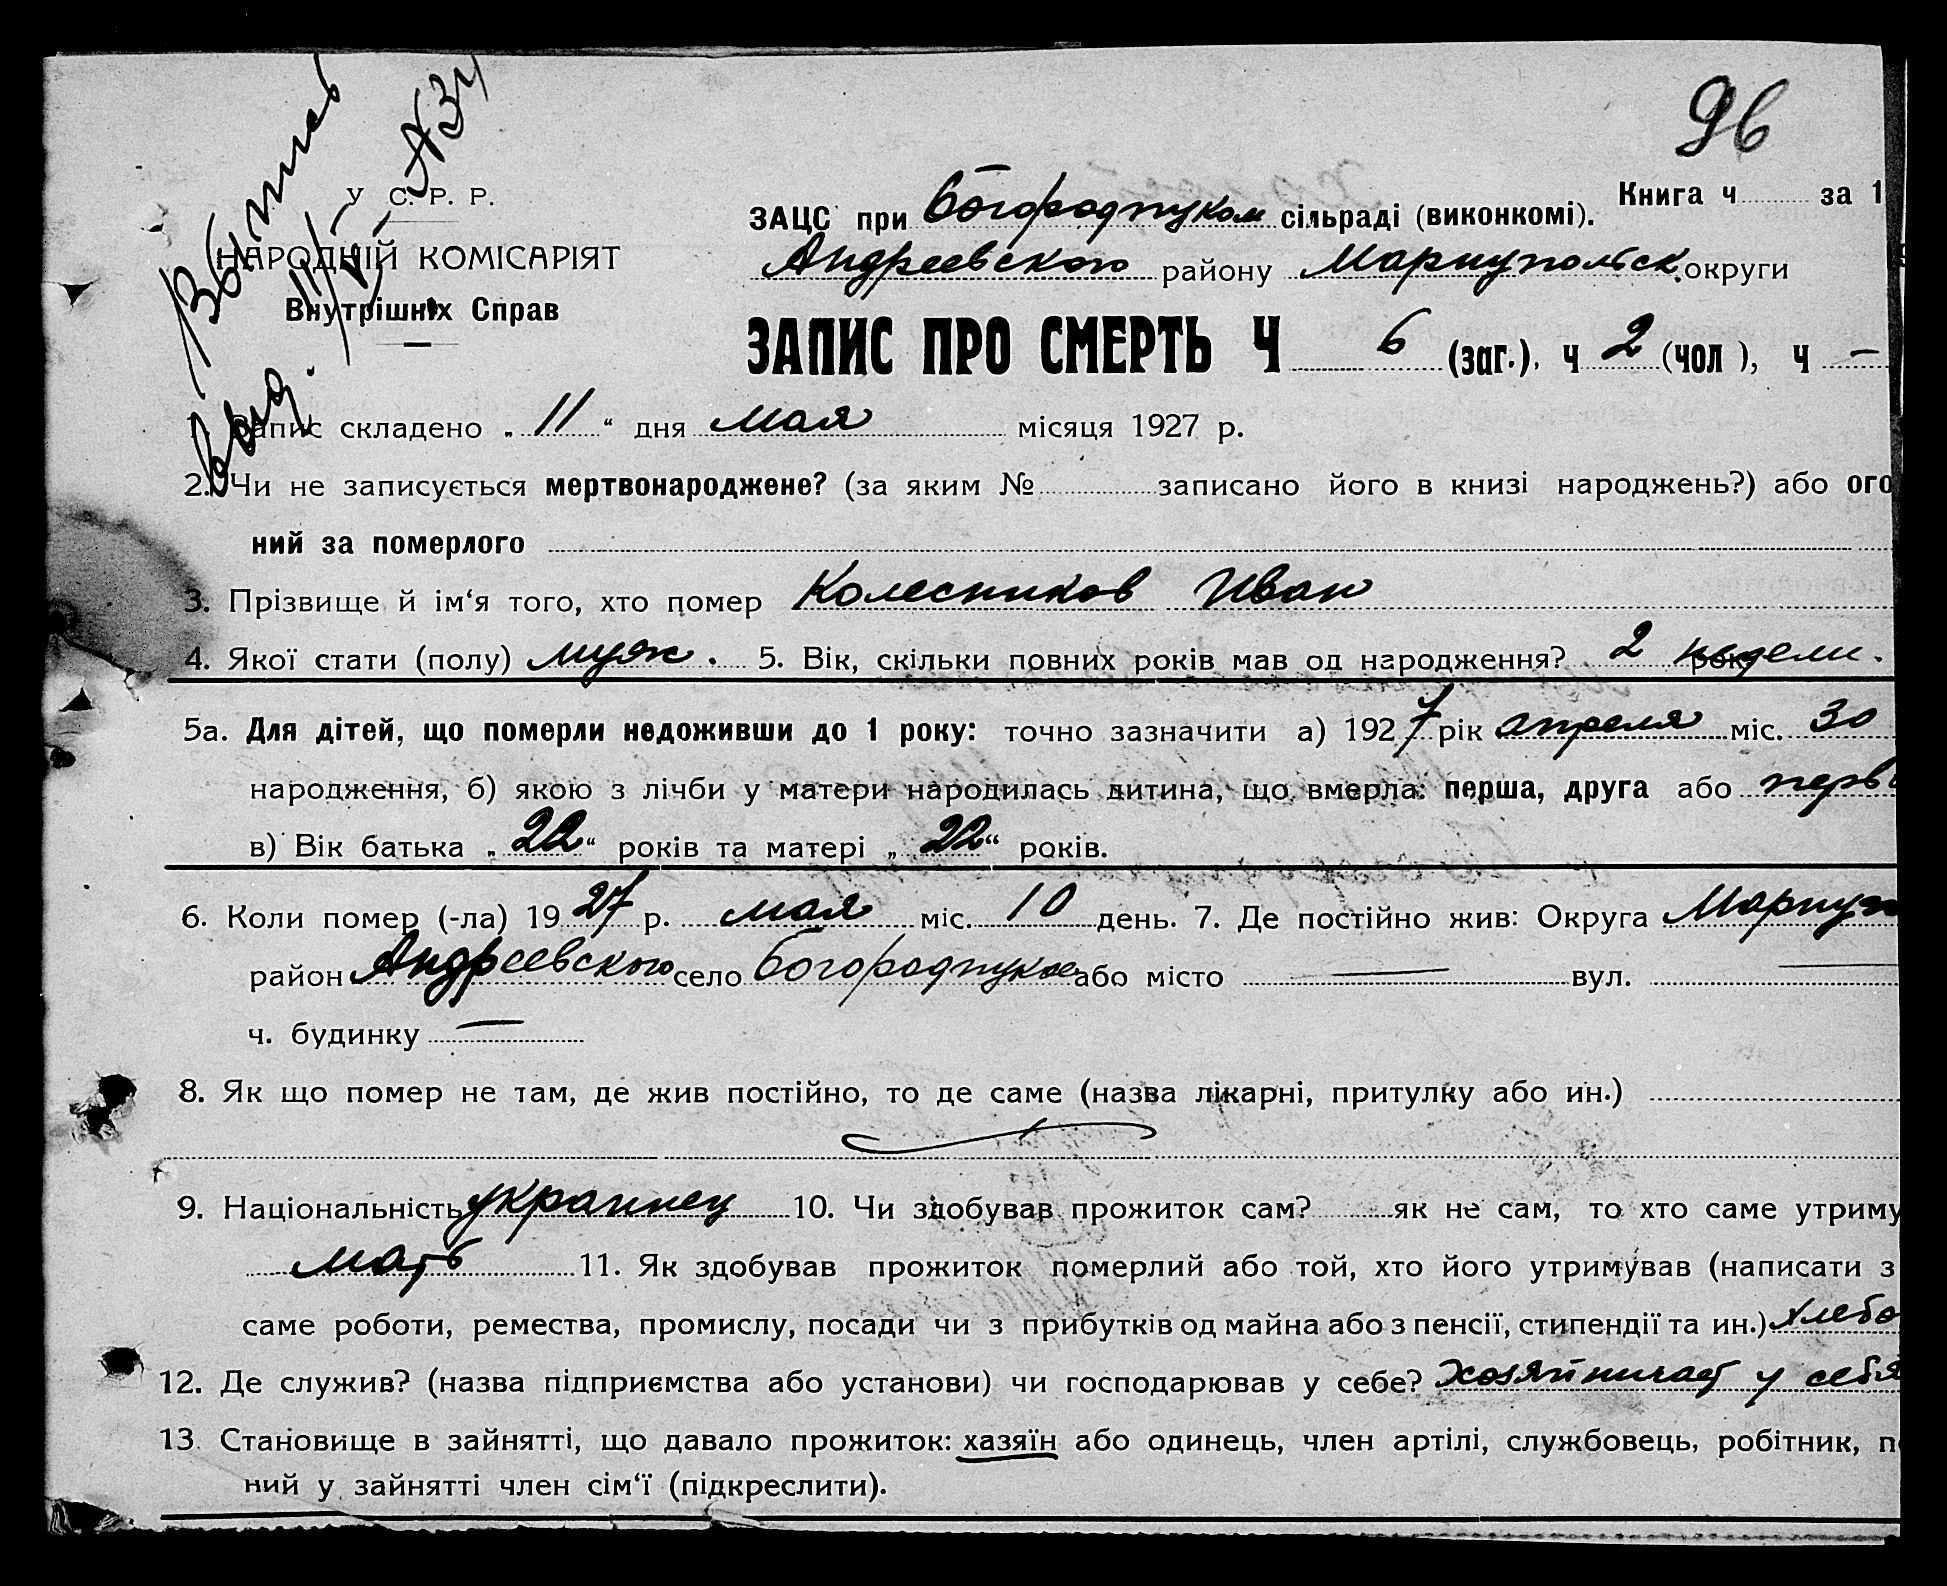 96
У. С. Р. Р.
НАРОДНІЙ КОМІСАРІЯТ
Внутрішніх Справ
Книга ч за 1
ЗАЦС при Богородицком сільраді (виконкомі).
Андреевского району Мариупольск. округи
ЗАПИС ПРО СМЕРТЬ Ч 6 (заг.), ч 2 (чол), ч —
1. Запис складено „11“ дня мая місяця 1927 р.
2. Чи не записується мертвонароджене? (за яким № записано його в книзі народжень?) або ого
ний за померлого
3. Прізвище й ім‘я того, хто помер Колесников Иван
4. Якої стати (полу) муж. 5. Вік, скільки повних років мав од народження? 2 недели.
5а. Для дітей, що померли недоживши до 1 року: точно зазначити а) 1927 рік апреля міс. 30
народження, б) якою з лічби у матери народилась дитина, що вмерла: перша, друга або перв
в) Вік батька „22“ років та матері „22“ років.
6. Коли помер (-ла) 1927 р. мая міс. 10 день. 7. Де постійно жив: Округа Мариуп
район Андреевского село Богородицкое або місто — вул. —
ч. будинку —
8. Як що помер не там, де жив постійно, то де саме (назва лікарні, притулку або ин.)
9. Національність украинец 10. Чи здобував прожиток сам? як не сам, то хто саме утриму
мать 11. Як здобував прожиток померлий або той, хто його утримував (написати з
саме роботи, ремества, промислу, посади чи з прибутків од майна або з пенсії, стипендії та ин.) хлебо
12. Де служив? (назва підприємства або установи) чи господарював у себе? хозяйничает у себя
13. Становище в зайнятті, що давало прожиток: хазяїн або одинець, член артілі, службовець, робітник, п
ний у зайнятті член сім‘ї (підкреслити).